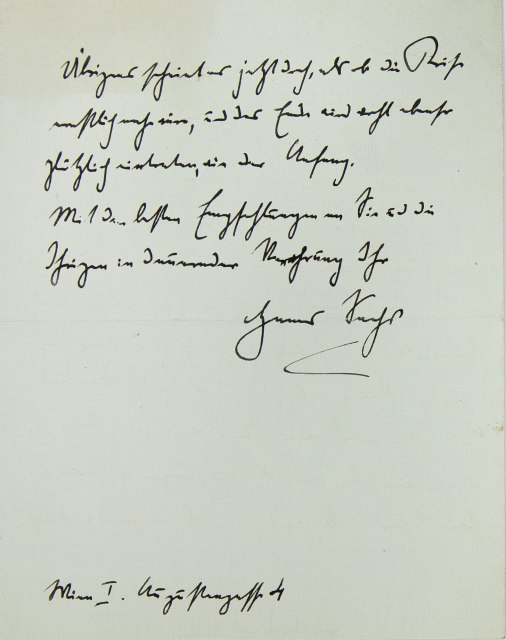 Übrigens scheint es jetzt doch, als ob die Krise
ernstlich nahe wäre, und das Ende wird wohl ebenso
plötzlich eintreten, wie der Anfang.
Mit den besten Empfehlungen an Sie und die
Ihrigen in dauernder Verehrung Ihr
Hanns Sachs
Wien I. Augustengasse 4